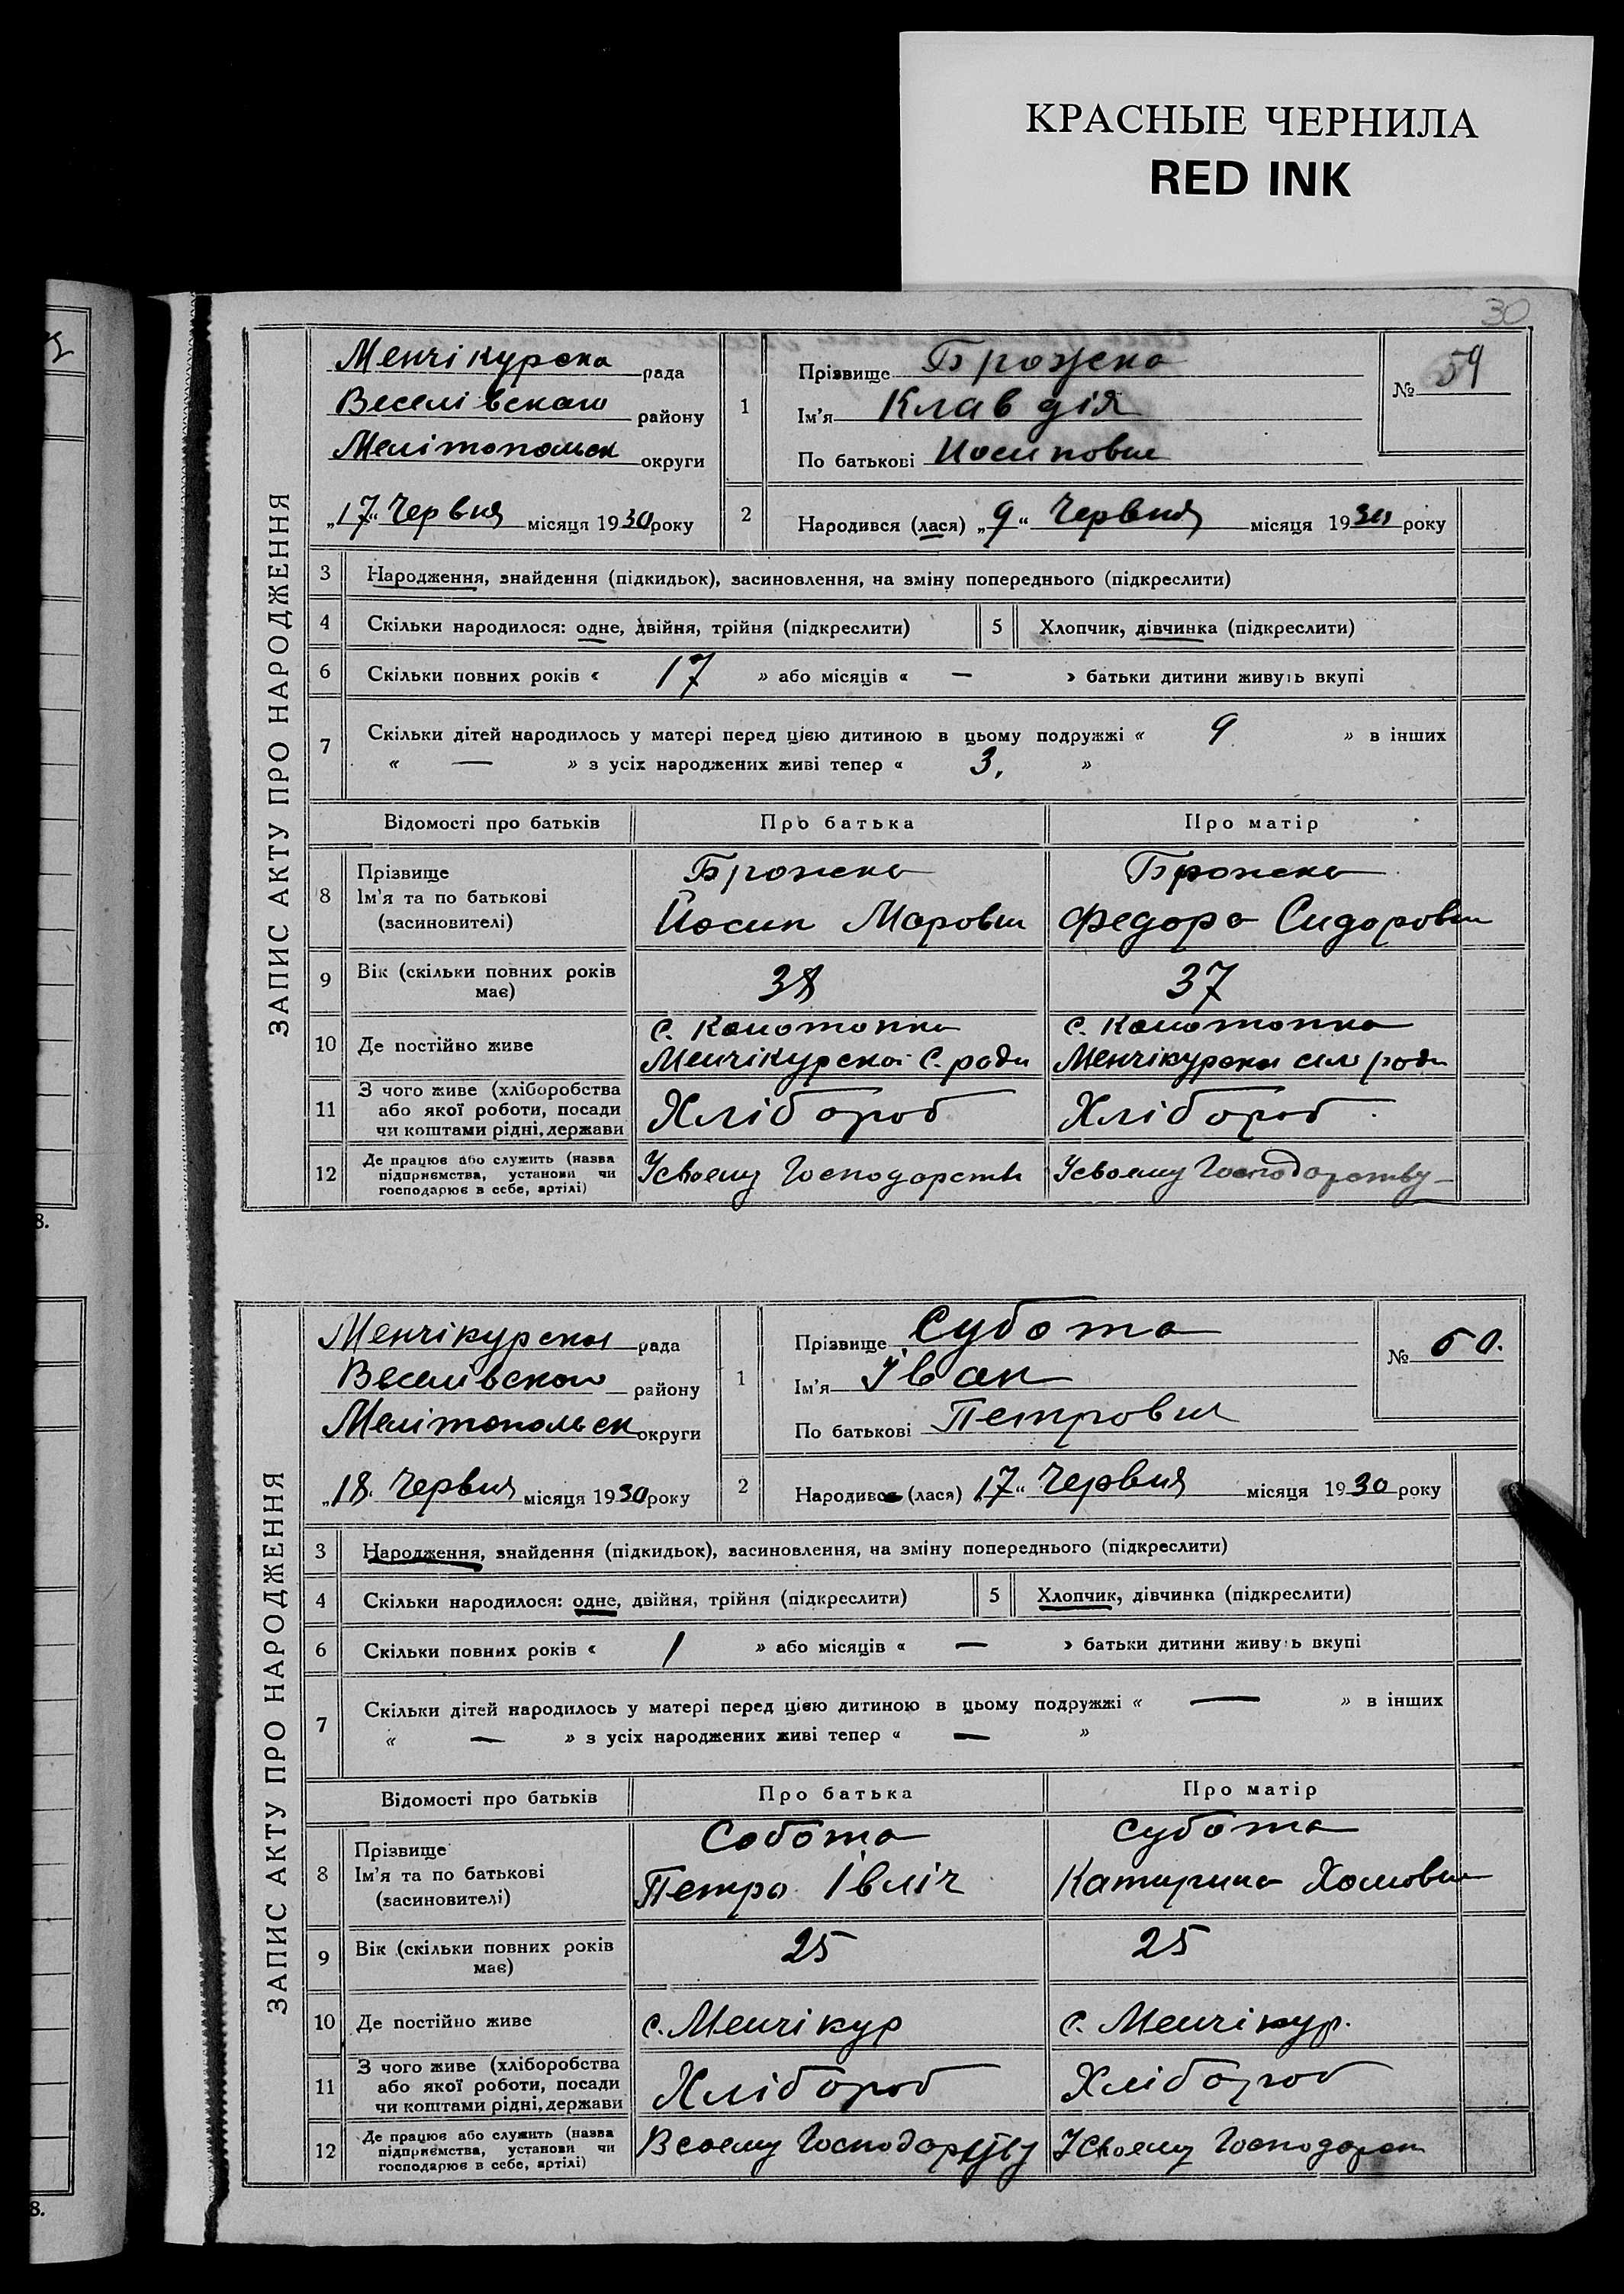 КРАСНЫЕ ЧЕРНИЛА
RED INK
30
ЗАПИС АКТУ ПРО НАРОДЖЕННЯ
Менчікурска рада
Веселівского району
Мелітопольск округи
„17“ Червня місяця 1930 року
1
Прізвище Брожска
Ім'я Клавдія
По батькові Иосиповна
№ 59
2
Народився (лася) „9“ Червня місяця 1930 року
3 Народження, знайдення (підкидьок), засиновлення, на зміну попереднього (підкреслити)
4 Скільки народилося: одне, двійня, трійня (підкреслити) 5 Хлопчик, дівчинка (підкреслити)
6 Скільки повних років « 17 » або місяців « — » батьки дитини живуть вкупі
7 Скільки дітей народилось у матері перед цією дитиною в цьому подружжі « 9 » в інших
« — » з усіх народжених живі тепер « 3. »
Відомості про батьків Про батька Про матір
8 Прізвище
Ім'я та по батькові
(засиновителі)
Брожска
Йосип
Брожска
Федора Сидоровн
9 Вік (скільки повних років
має)
38 37
10 Де постійно живе
с.
Менчікурскоі С. ради
с.
Менчікурскоі сіл ради
11 З чого живе (хліборобства
або якої роботи, посади
чи коштами рідні, держави
Хлібороб Хлібороб
12 Де працює або служить (назва
підприємства, установи чи
господарює в себе, артілі)
Усвоему Господарстві Усвоему Господарству
8.
ЗАПИС АКТУ ПРО НАРОДЖЕННЯ
Менчікурска рада
Веселівского району
Мелітопольск округи
„18. Червня місяця 1930 року
1
Прізвище Субота
Ім'я Іван
По батькові Петрович
№ 60.
2
Народився (лася) „17“ Червня місяця 1930 року
3 Народження, знайдення (підкидьок), засиновлення, на зміну попереднього (підкреслити)
4 Скільки народилося: одне, двійня, трійня (підкреслити) 5 Хлопчик, дівчинка (підкреслити)
6 Скільки повних років « 1 » або місяців « — » батьки дитини живуть вкупі
7 Скільки дітей народилось у матері перед цією дитиною в цьому подружжі « — » в інших
« — » з усіх народжених живі тепер « — »
Відомості про батьків Про батька Про матір
8 Прізвище
Ім'я та по батькові
(засиновителі)
Собота
Петро Івліч
Субота
Катирина Хомовн
9 Вік (скільки повних років
має)
25 25
10 Де постійно живе
с. Менчікур с. Менчікур.
11 З чого живе (хліборобства
або якої роботи, посади
чи коштами рідні, держави
Хлібороб Хлібороб
12 Де працює або служить (назва
підприємства, установи чи
господарює в себе, артілі)
Всвоему Господарству Усвоему Господарст
8.